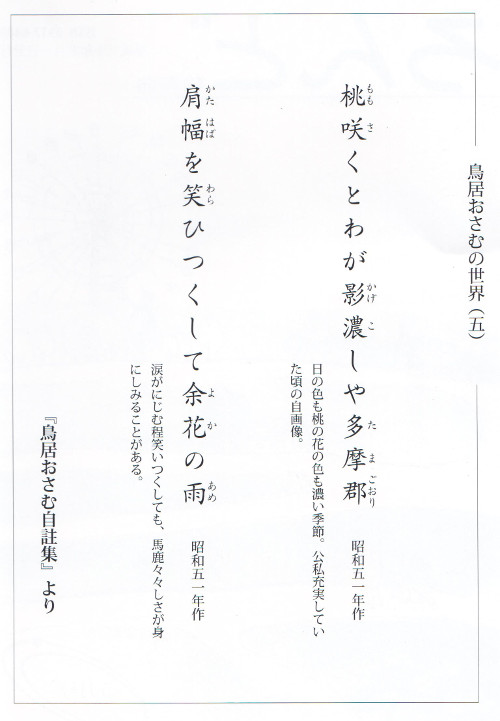 鳥居おさむの世界（五）
桃咲くとわが影濃しや多摩郡
もも さ かげ こ た ま ごおり
昭和五一年作
日の色も桃の花の色も濃い季節。公私充実してい
た頃の自画像。
肩幅を笑ひつくして余花の雨
かた はば わら よ か あめ
昭和五一年作
涙がにじむ程笑いつくしても、馬鹿々々しさが身
にしみることがある。
『鳥居おさむ自註集』より